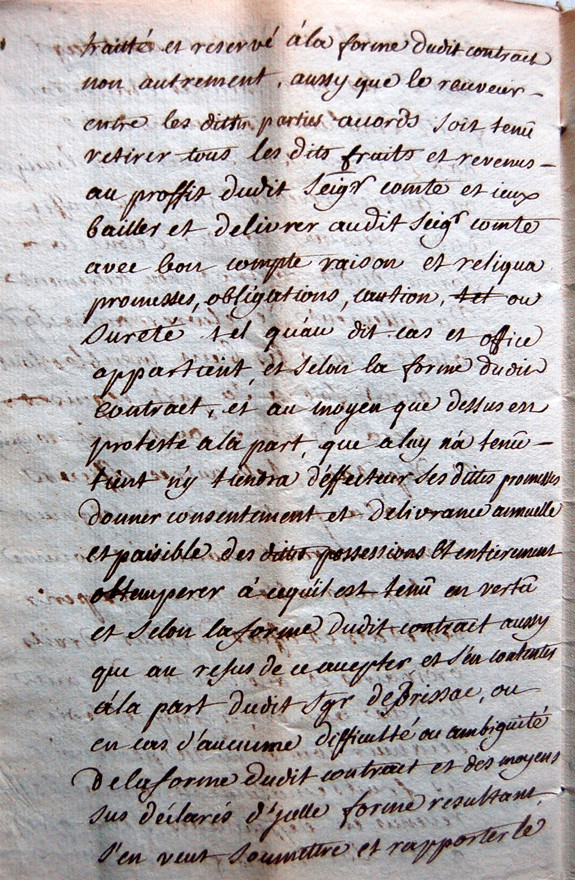 traitté et reservé á la forme dudit contract
non autrement, aussy que le receveur -
entre les dittes parties acordé soit tenû
retirer tous les dits fruits et revenus -
au proffit dudit Seigr comte et iceux
bailler et delivrer audit Seigr comte
avec bon compte raison et reliqua
promesses, obligations, caution, ou
Sureté tel qu'au dit cas et office
appartient, et selon la forme dudit
contract, et au moyen que dessus en
proteste a la part, que a luy n'a tenû -
tient n'y tiendra d'éffectuer ses dittes promesses
donner consentement et delivrance annuelle
et paisible des dittes possessions Et entierement
obtemperer á ce qu'il est tenû en vertu
et selon la forme dudit contrait aussy
que au refus de ce accepter et s'en contenter
á la part dudit Sgr de Brissac, ou
en cas d'aucune difficulté ou ambiguité
De la forme dudit contract et des moyens
sus déclarés d'jcelle forme resultant,
s'en veut soumettre et rapporter le